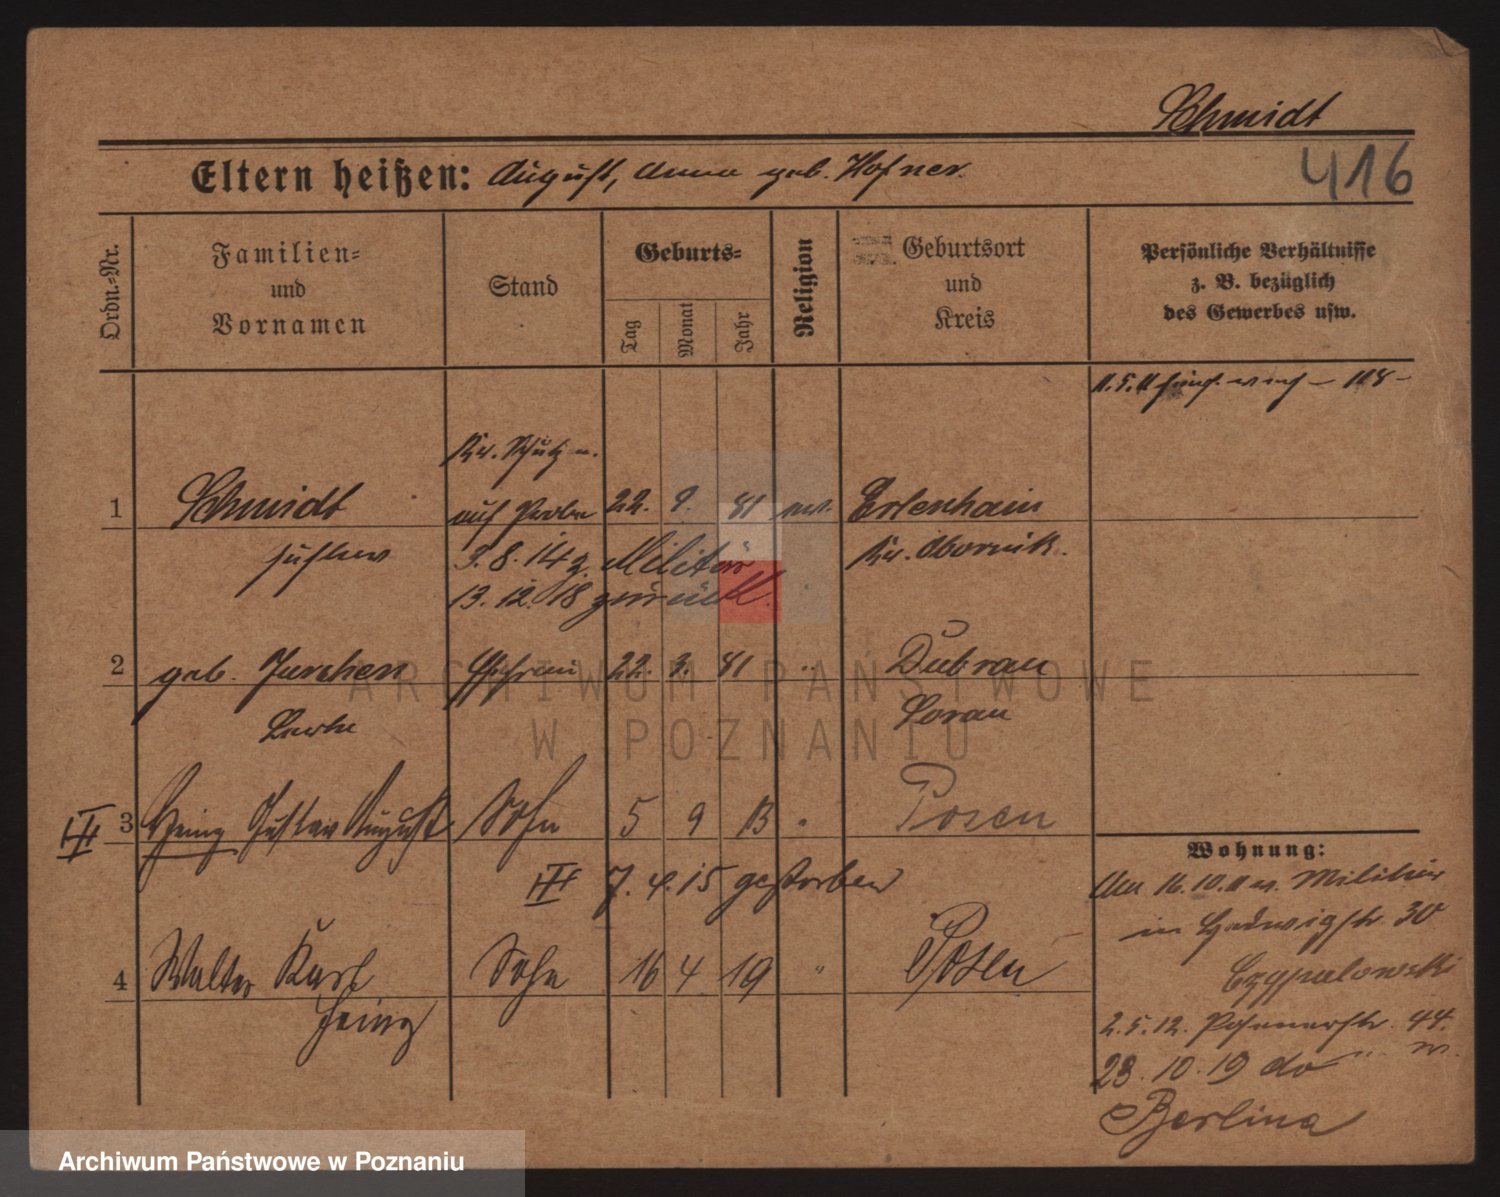 Schmidt
416
Eltern heißen: August, Anna geb. Hofner.
Ordn.-Nr.
Familien-
und
Vornamen
Stand
Geburts-
Tag
Monat
Jahr
Religion
Geburtsort
und
Kreis
Persönliche Verhältnisse
z. B. bezüglich
des Gewerbes usw.
11.5.11
Kr. Schutzm.
1 Schmidt auf Probe 22. 9. 81 ev. Erlenhain
Gustav 3.8.14 z. Militär Kr. Obornik.
13.12.18 zurück.
2 geb. Ehefrau 22. 3. 81 " Dubrau
Sorau
3 Heinz Gustav August Sohn 5 9 13 " Posen
7.4.15 gestorben
4 Walter Karl Sohn 16 4 19 " Posen
Heinz
Wohnung:
Am 16.10.11 v. Militär
in Hedwigstr. 30
2.5.12. Posenerstr. 44.
23.10.19 do
Berlina
ARCHIWUM PAŃSTWOWE
W POZNANIU
Archiwum Państwowe w Poznaniu